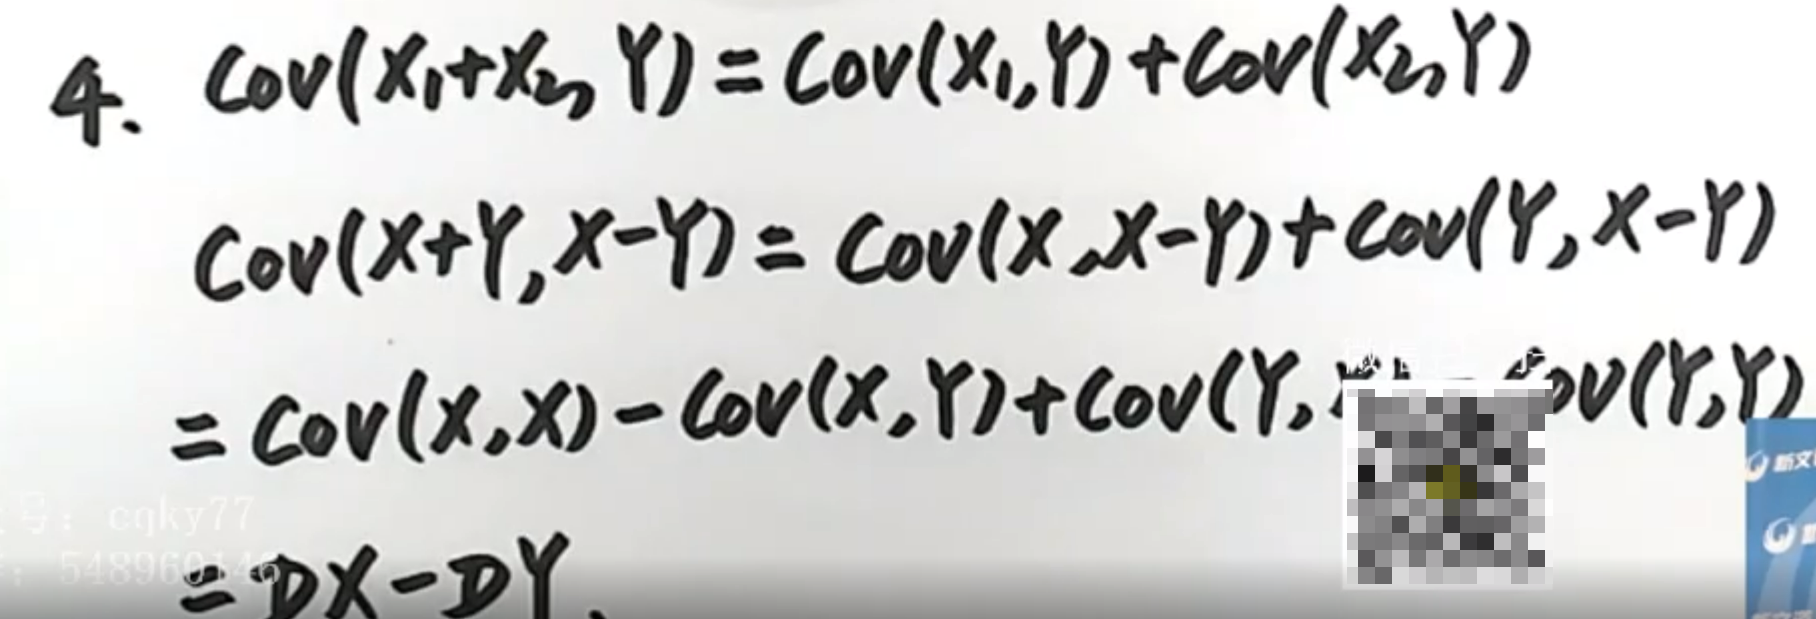 4. Cov(X₁+X₂, Y) = Cov(X₁,Y)+Cov(X₂,Y)
Cov(X+Y, X-Y) = Cov(X, X-Y)+Cov(Y, X-Y)
= Cov(X,X)-Cov(X,Y)+Cov(Y, - Cov(Y,Y)
= DX-DY.
号: cqky77
: 548960146
新文